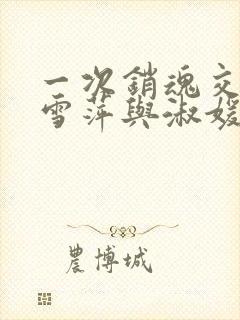 一次銷魂交
雪萍與淑媛
農博城